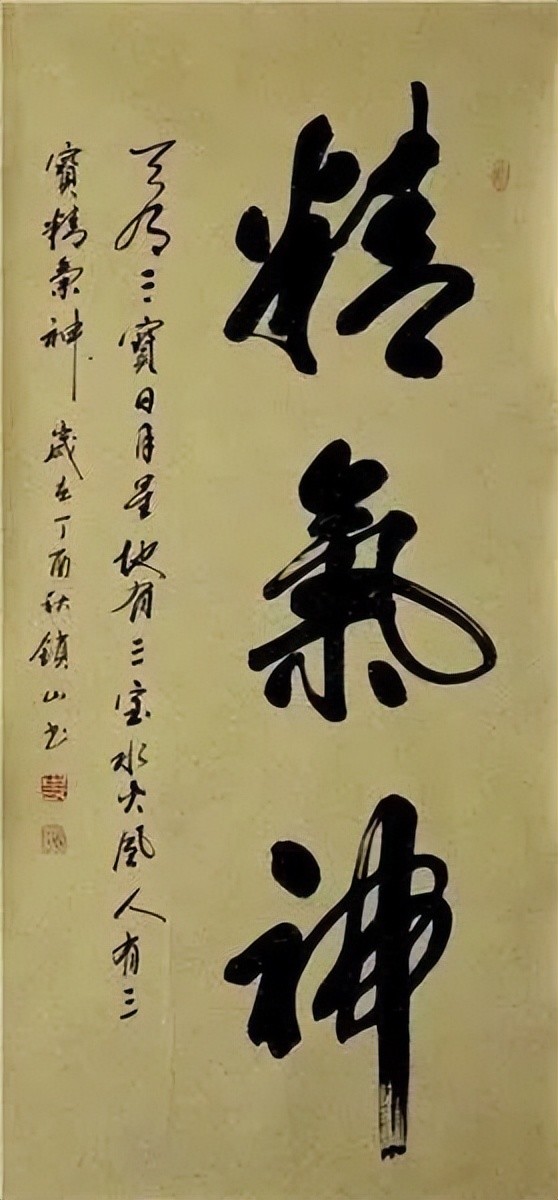 精氣神
天有三寶日月星地有三宝水火風人有三
寶精氣神 歲在丁酉秋鎮山书